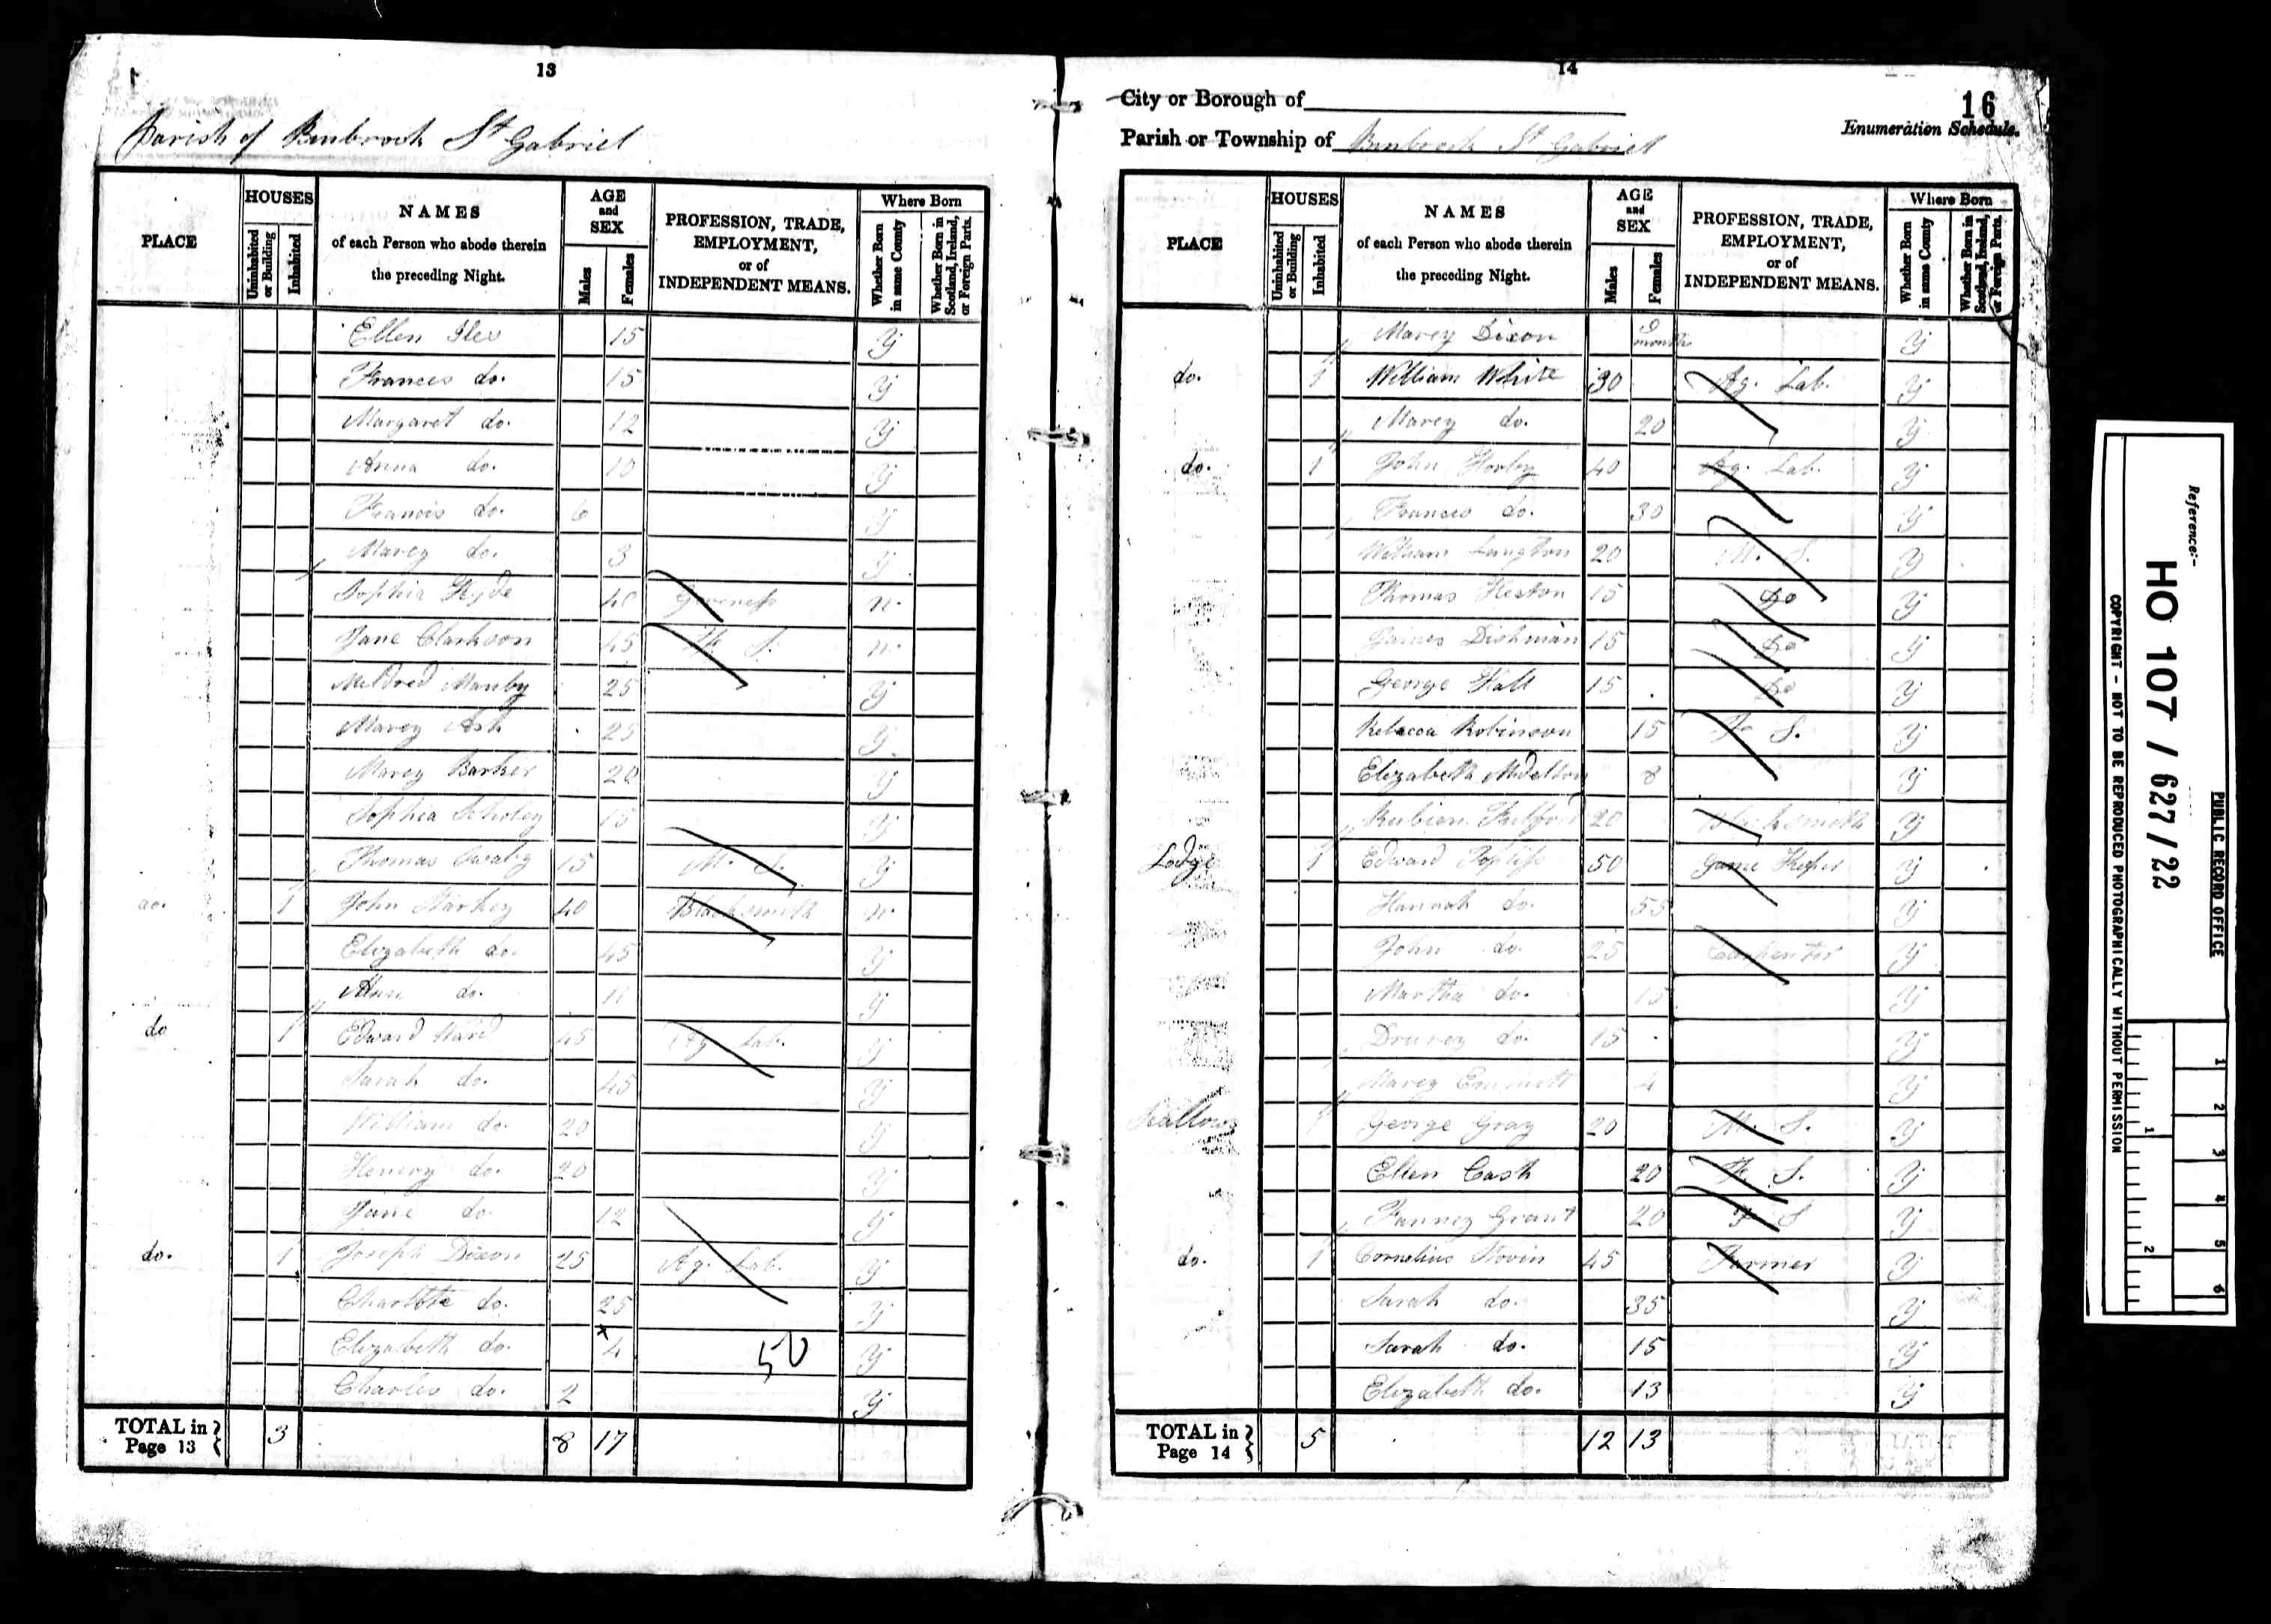 13
Parish of Binbrook St Gabriel
PLACE
HOUSES
Uninhabited or Building
Inhabited
NAMES
of each Person who abode therein
the preceding Night.
AGE
and
SEX
Males
Females
PROFESSION, TRADE,
EMPLOYMENT,
or of
INDEPENDENT MEANS.
Where Born
Whether Born in same County
Whether Born in Scotland, Ireland, or Foreign Parts.
Ellen 15 y
Frances do. 15 y
Margaret do. 12 y
Anna do. 10 y
Francis do. 6 y
Marey do. 3 y
Sophia Hyde 40 Governess n.
Jane Clarkson 45 F. S. n.
Mildred Manby 25 y
Marey Ash 25 y
Marey Barker 20 y
Sophia Scholey 15 y
Thomas 15 M. S. y
do. 1 John Starkey 40 Blacksmith n.
Elizabeth do. 45 y
Ann do. 11 y
do 1 Edward Ward 45 Ag. Lab. y
Sarah do. 45 y
William do. 20 y
Henery do. 20 y
Jane do 12 y
do. 1 Joseph Dixon 25 Ag. Lab. y
Charlotte do. 25 y
Elizabeth do. 4 50 y
Charles do. 2 y
TOTAL in
Page 13 } 3 8 17
14
City or Borough of
16
Parish or Township of Binbrook St Gabriel
Enumeration Schedule.
PLACE
HOUSES
Uninhabited or Building
Inhabited
NAMES
of each Person who abode therein
the preceding Night.
AGE
and
SEX
Males
Females
PROFESSION, TRADE,
EMPLOYMENT,
or of
INDEPENDENT MEANS.
Where Born
Whether Born in same County
Whether Born in Scotland, Ireland, or Foreign Parts.
Marey Dixon 9 months y
do. 1 William White 30 Ag. Lab. y
Marey do. 20 y
do. 1 John 40 Ag. Lab. y
Frances do. 30 y
William Langton 20 M. S. y
Thomas Heston 15 Do y
James Dishman 15 Do y
George Hall 15 Do y
Rebecca Robinson 15 F. S. y
Elizabeth Midelton 8 y
Rubien Fulford 20 Blacksmith y
Lodge 1 Edward Topliss 50 Game Keeper y
Hannah do. 55 y
John do. 25 Carpenter y
Martha do. 15 y
Drurey do. 15 y
Marey Emmett 4 y
1 George Gray 20 M. S. y
Ellen Cash 20 F. S. y
Fanney Grant 20 F S y
do. 1 Cornelius 45 Farmer y
Sarah do. 35 y
Sarah do. 15 y
Elizabeth do. 13 y
TOTAL in
Page 14 } 5 12 13
PUBLIC RECORD OFFICE
Reference:-
HO 107 / 627/22
COPYRIGHT - NOT TO BE REPRODUCED PHOTOGRAPHICALLY WITHOUT PERMISSION
1 2 3 4 5 6
1 2